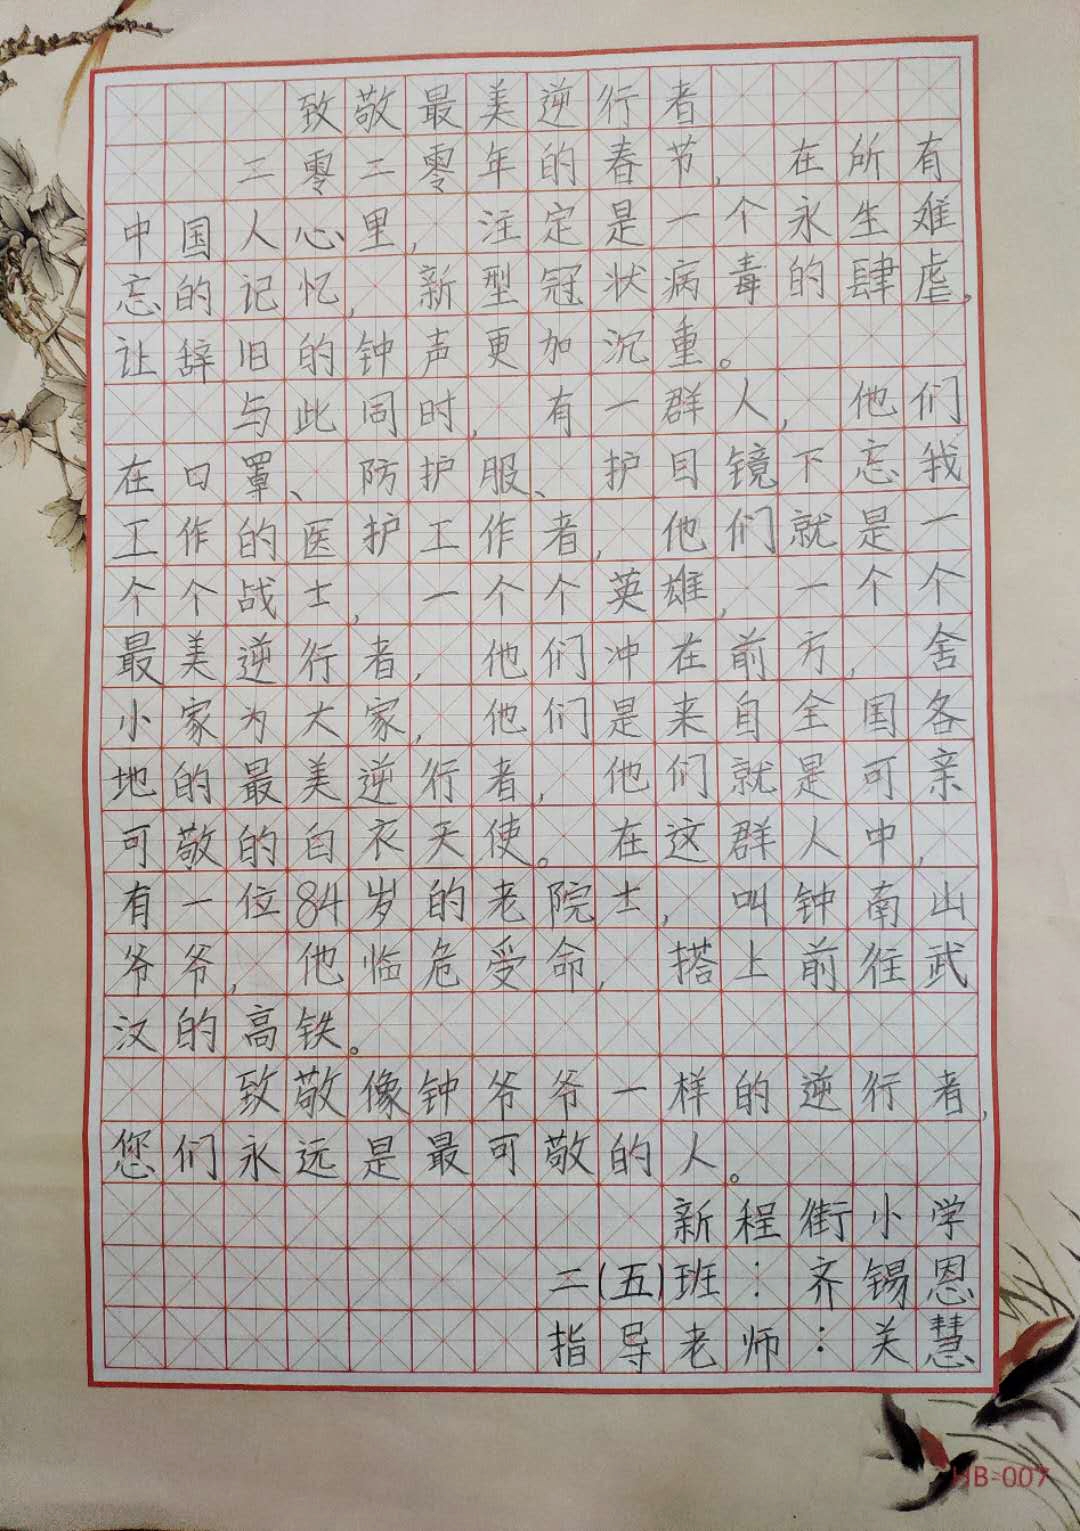 致敬最美逆行者
二零二零年的春节，在所有
中国人心里，注定是一个永生难
忘的记忆，新型冠状病毒的肆虐，
让辞旧的钟声更加沉重。
与此同时，有一群人，他们
在口罩、防护服、护目镜下忘我
工作的医护工作者，他们就是一
个个战士，一个个英雄，一个个
最美逆行者，他们冲在前方，舍
小家为大家，他们是来自全国各
地的最美逆行者，他们就是可亲
可敬的白衣天使。在这群人中，
有一位84岁的老院士，叫钟南山
爷爷，他临危受命，搭上前往武
汉的高铁。
致敬像钟爷爷一样的逆行者，
您们永远是最可敬的人。
新程街小学
二(五)班：齐锡恩
指导老师：关慧
HB-007